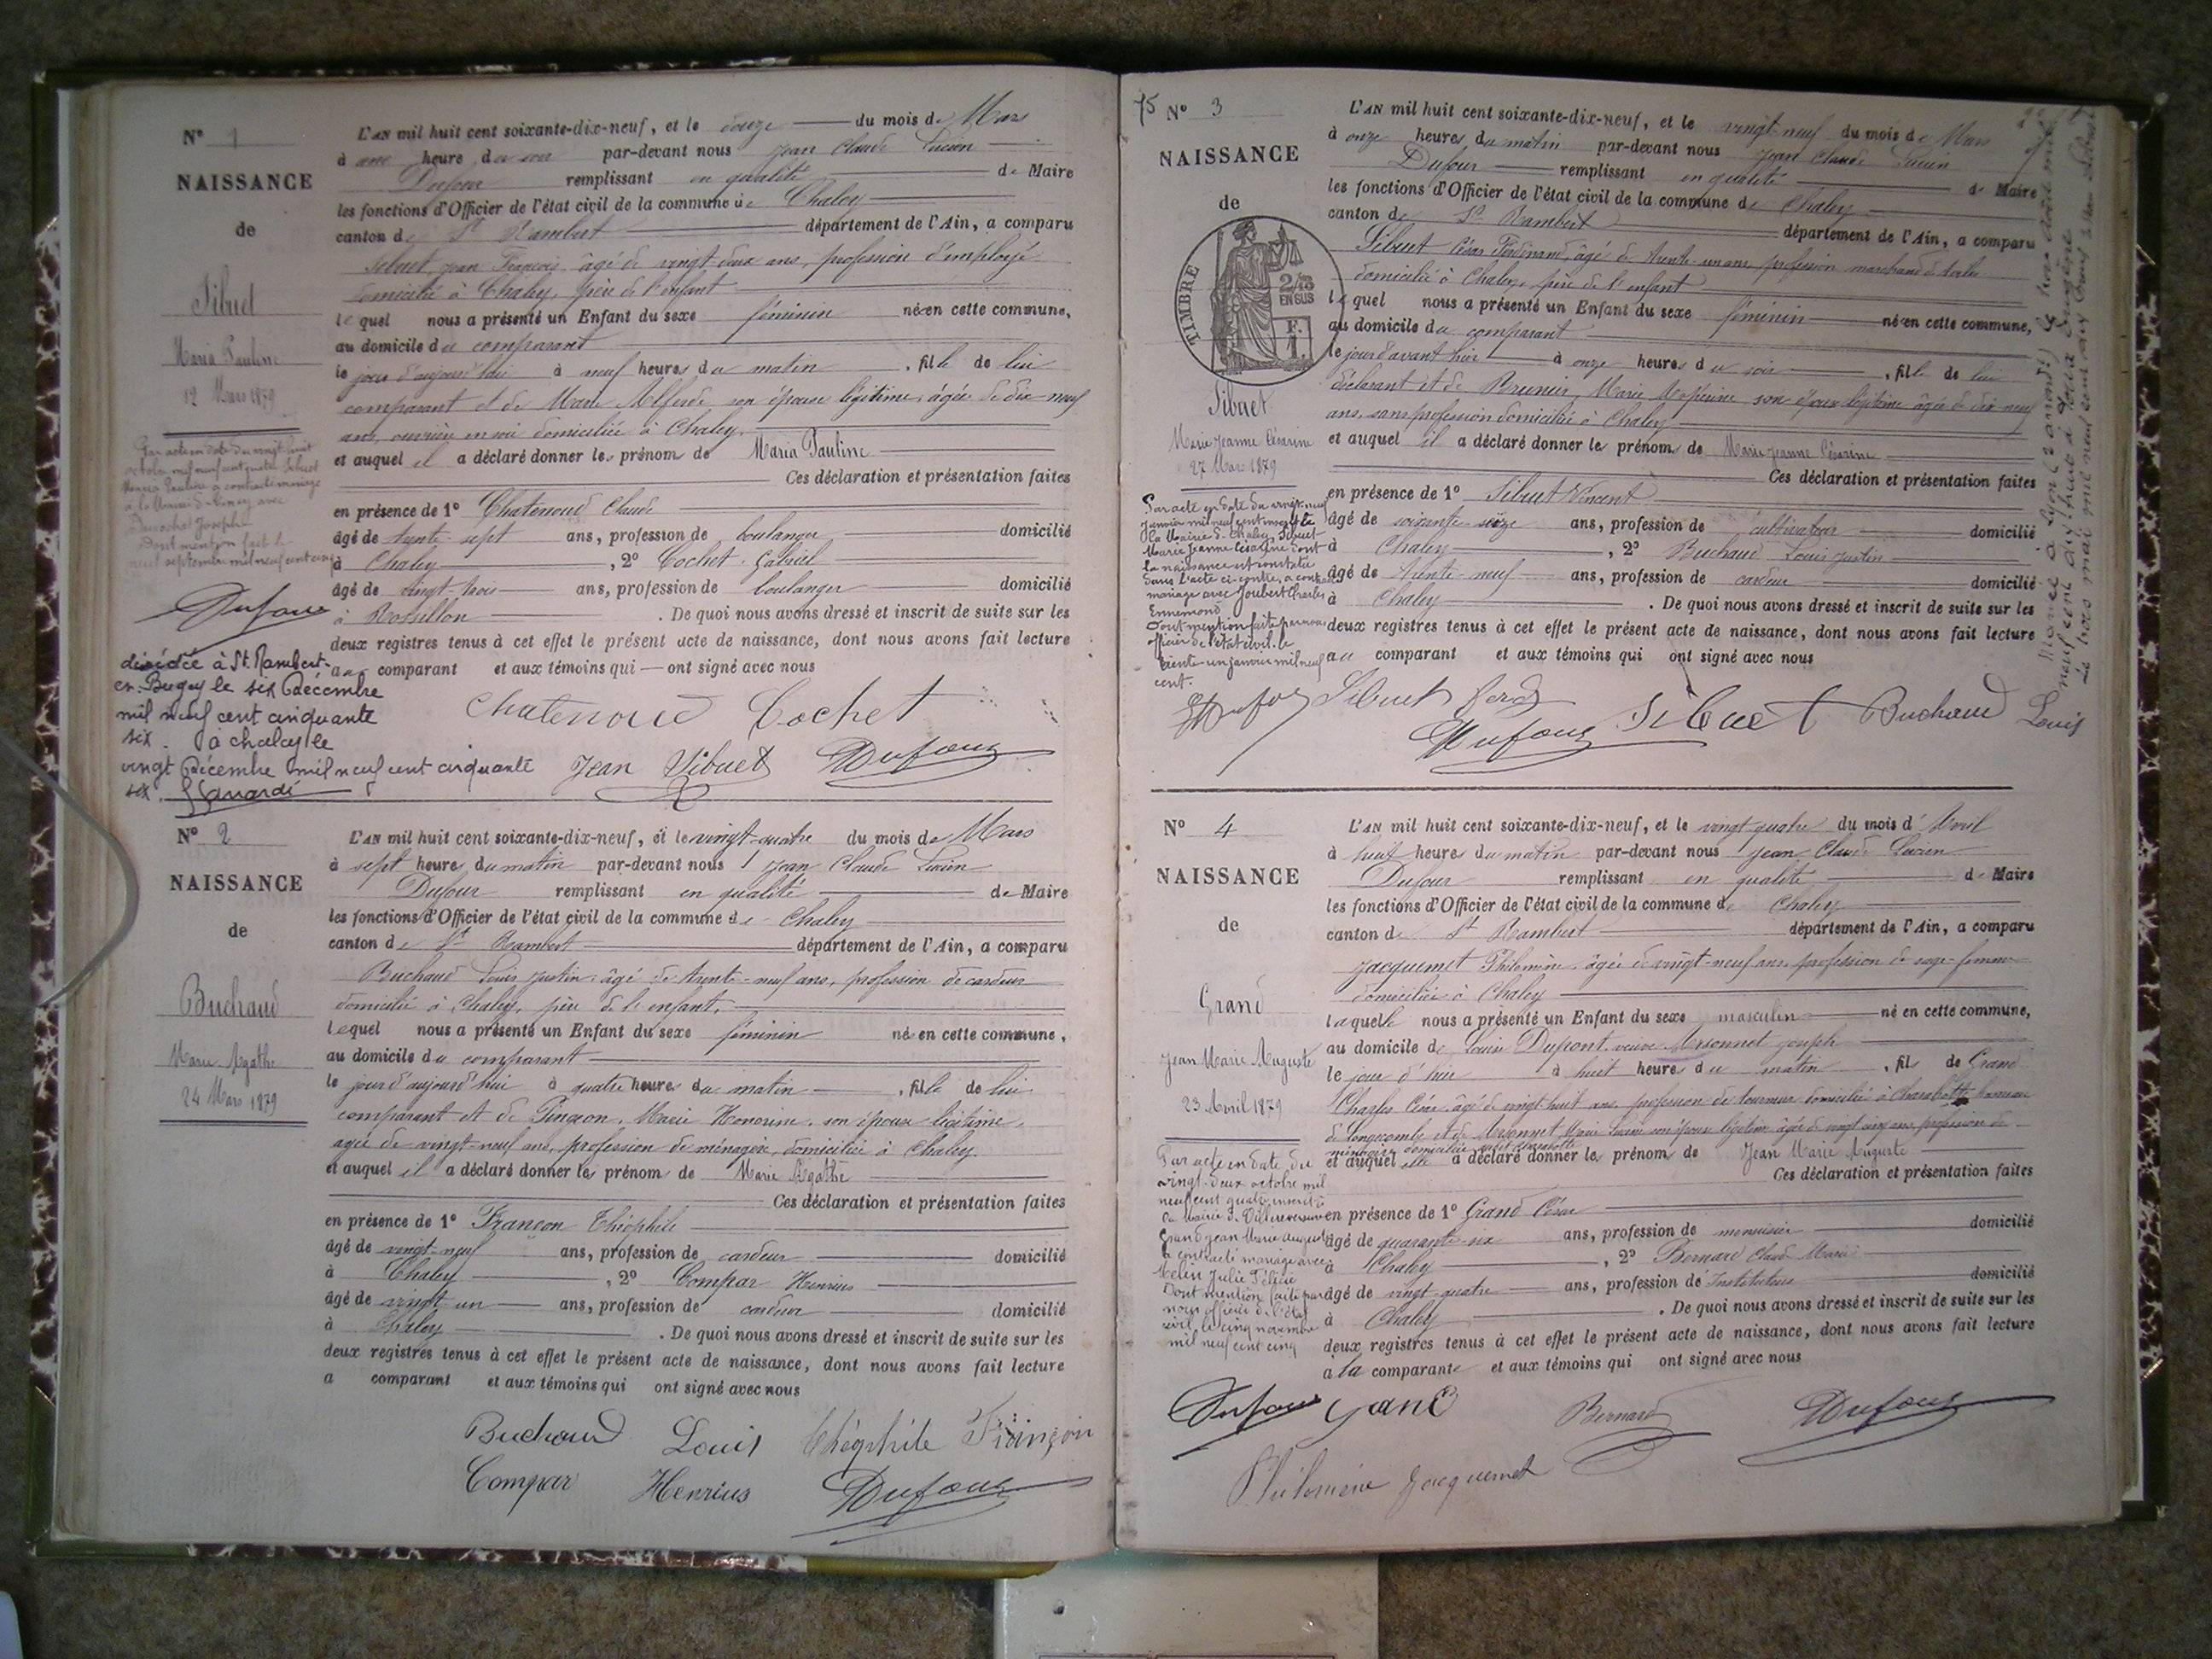 N° 1
NAISSANCE
de
Sibuet
Maria Pauline
12 Mars 1879
Par acte en date du vingt huit
octobre mil neuf cent quatre Sibuet
Maria Pauline a contracté mariage
à la Mairie de avec
Joseph
Dont mention fait le
neuf septembre mil neuf cent cinq
Dufour
décédée à St. Rambert-
en-Bugey le six Décembre
mil neuf cent cinquante
six. à chaley le
vingt Décembre mil neuf cent cinquante
six.
L'AN mil huit cent soixante-dix-neuf, et le douze du mois de Mars
à une heure du soir par-devant nous Jean Claude Lucien
Dufour remplissant en qualité de Maire
les fonctions d'Officier de l'état civil de la commune de Chaley
canton de St Rambert département de l'Ain, a comparu
Sibuet, Jean François âgé de vingt deux ans, profession d'employé
domicilié à Chaley, père de l'enfant
lequel nous a présenté un Enfant du sexe féminin né en cette commune,
au domicile du comparant
le jour d'aujourd'hui à neuf heures du matin, fille de lui
comparant et de Marie son épouse légitime, âgée de dix-neuf
ans, ouvrière en soie domiciliée à Chaley.
et auquel il a déclaré donner les prénoms de Maria Pauline
Ces déclaration et présentation faites
en présence de 1° Chatenoud Claude
âgé de trente-sept ans, profession de boulanger domicilié
à Chaley, 2° Cochet Gabriel
âgé de vingt-trois ans, profession de boulanger domicilié
à Rossillon. De quoi nous avons dressé et inscrit de suite sur les
deux registres tenus à cet effet le présent acte de naissance, dont nous avons fait lecture
au comparant et aux témoins qui — ont signé avec nous
Chatenoud Cochet
Jean Sibuet Dufour
N° 2
NAISSANCE
de
Buchaud
Marie Agathe
24 Mars 1879
L'AN mil huit cent soixante-dix-neuf, et le vingt-quatre du mois de Mars
à sept heures du matin par-devant nous Jean Claude Lucien
Dufour remplissant en qualité de Maire
les fonctions d'Officier de l'état civil de la commune de Chaley
canton de St Rambert département de l'Ain, a comparu
Buchaud Louis Justin, âgé de trente-neuf ans, profession de cardeur
domicilié à Chaley, père de l'enfant.
lequel nous a présenté un Enfant du sexe féminin né en cette commune,
au domicile du comparant
le jour d'aujourd'hui à quatre heures du matin, fille de lui
comparant et de Pingeon, Marie Honorine, son épouse légitime,
agée de vingt-neuf ans, profession de ménagère, domiciliée à Chaley.
et auquel il a déclaré donner les prénoms de Marie Agathe
Ces déclaration et présentation faites
en présence de 1° Françon Théophile
âgé de vingt-neuf ans, profession de cardeur domicilié
à Chaley, 2° Compar Henrius
âgé de vingt un ans, profession de cardeur domicilié
à Chaley. De quoi nous avons dressé et inscrit de suite sur les
deux registres tenus à cet effet le présent acte de naissance, dont nous avons fait lecture
a comparant et aux témoins qui ont signé avec nous
Buchaud Louis Théophile Françon
Compar Henrius Dufour
75 N° 3
NAISSANCE
de
TIMBRE
2/10
EN SUS
F.
1.
Sibuet
Marie Jeanne Césarine
27 Mars 1879
Par acte en date du vingt-neuf
janvier mil neuf cent inscrit à
la Mairie de Chaley, Sibuet
Marie Jeanne Césarine dont
la naissance est constatée
dans l'acte ci-contre, a contracté
mariage avec Joubert Charles
Ennemond
Dont mention faite par nous
officier de l'état civil, le
trente-un janvier mil neuf
cent.
Dufour
L'AN mil huit cent soixante-dix-neuf, et le vingt-neuf du mois de Mars
à onze heures du matin par-devant nous Jean Claude Lucien
Dufour remplissant en qualité de Maire
les fonctions d'Officier de l'état civil de la commune de Chaley
canton de St Rambert département de l'Ain, a comparu
Sibuet César Ferdinand, âgé de trente-un ans, profession marchand de toiles
domicilié à Chaley, père de l'enfant
lequel nous a présenté un Enfant du sexe féminin né en cette commune,
au domicile du comparant
le jour d'avant hier à onze heures du soir, fille de lui
déclarant et de Brunier, Marie son épouse légitime âgée de dix neuf
ans, sans profession domiciliée à Chaley
et auquel il a déclaré donner les prénoms de Marie Jeanne Césarine
Ces déclaration et présentation faites
en présence de 1° Sibuet Vincent
âgé de soixante-seize ans, profession de cultivateur domicilié
à Chaley, 2° Buchaud Louis Justin
âgé de trente-neuf ans, profession de cardeur domicilié
à Chaley. De quoi nous avons dressé et inscrit de suite sur les
deux registres tenus à cet effet le présent acte de naissance, dont nous avons fait lecture
au comparant et aux témoins qui ont signé avec nous
Sibuet ferd
Dufour Sibuet Buchaud Louis
N° 4
NAISSANCE
de
Grand
Jean Marie Auguste
23 Avril 1879
Par acte en date du
vingt-deux octobre mil
neuf cent quatre inscrit à
la Mairie de Villereversure
Grand Jean Marie Auguste
a contracté mariage avec
Julie Félicie
Dont mention faite par
nous officier de l'état
civil, le cinq novembre
mil neuf cent cinq
Dufour
L'AN mil huit cent soixante-dix-neuf, et le vingt quatre du mois d'Avril
à huit heures du matin par-devant nous Jean Claude Lucien
Dufour remplissant en qualité de Maire
les fonctions d'Officier de l'état civil de la commune de Chaley
canton de St Rambert département de l'Ain, a comparu
Jacquemet Philomène, âgée de vingt-neuf ans, profession de sage-femme
domiciliée à Chaley
laquelle nous a présenté un Enfant du sexe masculin né en cette commune,
au domicile de Louise Dupont veuve Mersonnet Joseph
le jour d'hier à huit heures du matin, fils de Grand
Charles César âgé de vingt-huit ans, profession de tourneur domicilié à Charabotte hameau
de Longecombe et de Mersonnet Marie son épouse légitime âgée de vingt cinq ans profession de
ménagère domiciliée
et auquel elle a déclaré donner les prénoms de Jean Marie Auguste
Ces déclaration et présentation faites
en présence de 1° Grand César
âgé de quarante-six ans, profession de menuisier domicilié
à Chaley, 2° Bernard Claude Marie
âgé de vingt-quatre ans, profession de Instituteur domicilié
à Chaley. De quoi nous avons dressé et inscrit de suite sur les
deux registres tenus à cet effet le présent acte de naissance, dont nous avons fait lecture
à la comparante et aux témoins qui ont signé avec nous
Grand Bernard Dufour
Philomène Jacquemet